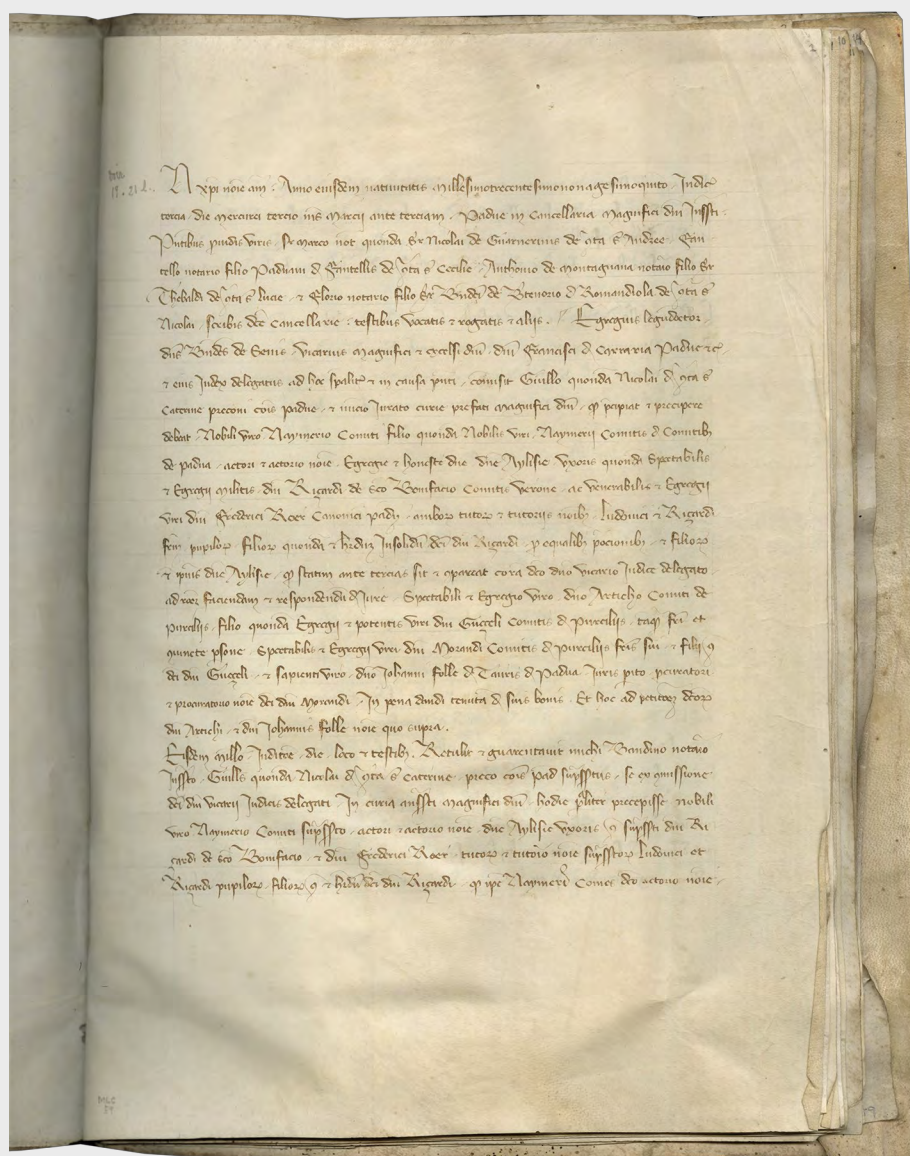 xpi noie am . Anno eiusdem nativitatis Millesimotrecentesimononagesimoquito . Indic
tercia . die mercurei tercio ins Marcij ante terciam . Padue in Cancellaria Magnifici dni Inssti .
Pntibus viris . Sr Marco not quonda Sr Nicolai de Guarnerinis de cota s Andree .
tello notario filio Paduani d de cota s Cecilie . Anthonio de Montagnana notaio filio Sr
Thebaldi de cota s Lucie . et notario filio Sr Bindi de Btenorio d Romandiola de cota s
Nicolai . scribis dce Cancellarie : testibus vocatis et rogatis et alijs . Egregius legudoctor
dns Bindes de Senis . vicarius Magnifici et excelsi dni . dni Francisci d Carraria Padue etc
et eius Index delegatus ad hoc spalit et in causa pnti . comisit Guillo quonda Nicolai d cota s
Caterine preconi cois padue . et nucio Iurato curie prefati Magnifici dni . q pcipiat et precipere
debeat . Nobili viro Naymerio Comiti filio quonda Nobilis viri . Naymerij Comitis d Comitib
de padua . actori et actorio noie . Egregie et honeste dne dne Aylisie uxoris quonda Spectabilis
et Egregij militis . dni Ricardi de sco Bonifacio Comitis verone . ac venerabilis et Egregij
viri dni Frederici Roer Canonici padu . ambor tutor et tutoriis noib . Ludovici et Ricardi
frm pupilor . filior quonda et hrdum Insolidu dci dni Ricardi . p equalib pocionib . et filior
et ipsius dne Aylisie . q statim ante tercias sit et compareat cora dco dno vicario Iudice delegato
ad faciendam et respondendu d Iure . Spectabili et Egregio viro . dno Articho Comiti de
Purcilijs . filio quonda Egregij et potentis viri dni Gueceli Comitis d Purcilijs . taq fri et
piuncte psone . Spectabilis et Egregij viri . dni Morandi Comitis d Purcilijs fris sui . et filij q
dci dni Guecelli . et sapienti viro . dno Iohanni Folle d Tauris d Padua . Iuris pito . pcuratori
et procuratorio noie dci dni Morandi . In pena dandi tenuta d suis bonis . Et hoc ad petitoez dcor
dni Artichi . et dni Iohannis folle noie quo supra .
Eisdem millo . Inditoe . die . loco et testib . Retulit et guarentavit michi Bandino notaio
Inssto . Guills quonda Nicolai d cota s Caterine . preco cois Pad supsstus . se ex comissione
dci dni vicarij Iudicis delegati . In curia anssti Magnifici dni . hodie psliter precepisse . Nobili
viro Naymerio Comiti supssto . actori et actorio noie . dne Aylisie uxoris q supssti dni Ri
cardi de sco Bonifacio . et dni Frederici Roer . tutor et tutorio noie supsstor Ludovici et
Ricardi pupilor . filior q et hrdu dci dni Ricardi . q ipe Naymeri Comes dco actorio noie .